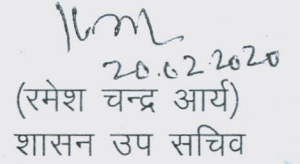 20.02.2020
(रमेश चन्द्र आर्य)
शासन उप सचिव